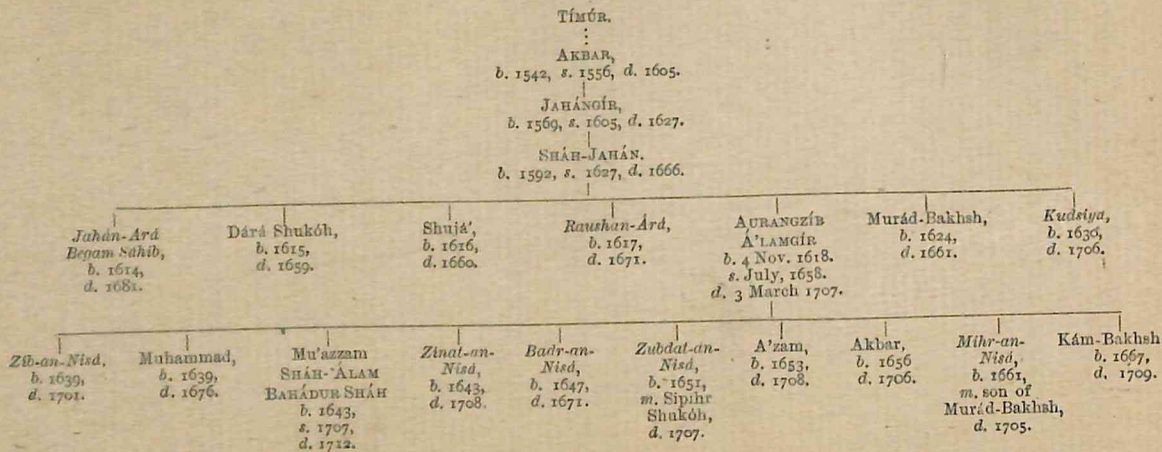 TÍMÚR.
AKBAR,
b. 1542, s. 1556, d. 1605.
JAHÁNGÍR,
b. 1569, s. 1605, d. 1627.
SHÁH-JAHÁN.
b. 1592, s. 1627, d. 1666.
Jahán-Árá
Begam Sáhib,
b. 1614,
d. 1681.
Dárá Shukóh,
b. 1615,
d. 1659.
Shujá',
b. 1616,
d. 1660.
Raushan-Árá,
b. 1617,
d. 1671.
AURANGZÍB
Á'LAMGÍR
b. 4 Nov. 1618.
s. July, 1658.
d. 3 March 1707.
Murád-Bakhsh,
b. 1624,
d. 1661.
Kudsiya,
b. 1630,
d. 1706.
Zíb-an-Nisá,
b. 1639,
d. 1701.
Muhammad,
b. 1639,
d. 1676.
Mu'azzam
SHÁH-'ÁLAM
BAHÁDUR SHÁH
b. 1643,
s. 1707,
d. 1712.
Zínat-an-
Nisá,
b. 1643,
d. 1708.
Badr-an-
Nisá,
b. 1647,
d. 1671.
Zubdat-an-
Nisá,
b. 1651,
m. Sipihr
Shukóh,
d. 1707.
A'zam,
b. 1653,
d. 1708.
Akbar,
b. 1656
d. 1706.
Mihr-an-
Nisá,
b. 1661,
m. son of
Murád-Bakhsh,
d. 1705.
Kám-Bakhsh
b. 1667,
d. 1709.